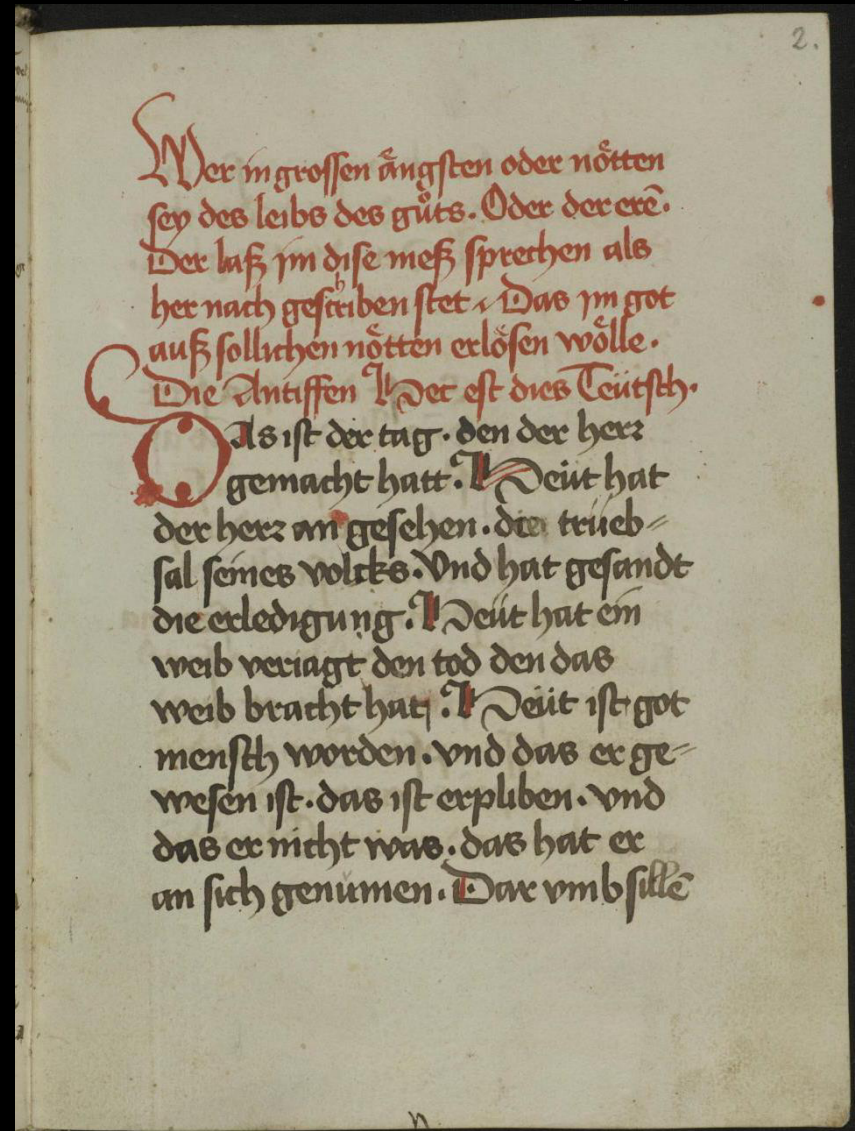 2.
Wer in grossen ångsten oder nötten
sey des leibs des gůts. Oder der erē.
Der laß jm dise meß sprechen als
her nach geschriben stet. Das jm got
auß sollichen nötten erlösen wölle.
Die Antiffen Hec est dies Teütsch.
Das ist der tag. den der herr
gemacht hatt. Heüt hat
der herr an gesehen. die trüeb=
sal seines volcks. Vnd hat gesandt
die erledigung. Heüt hat ein
weib veriagt den tod den das
weib bracht hat. Heüt ist got
mensch worden. vnd das er ge=
wesen ist. das ist erpliben. vnd
das er nicht was. das hat er
an sich genumen. Dar vmb süllē